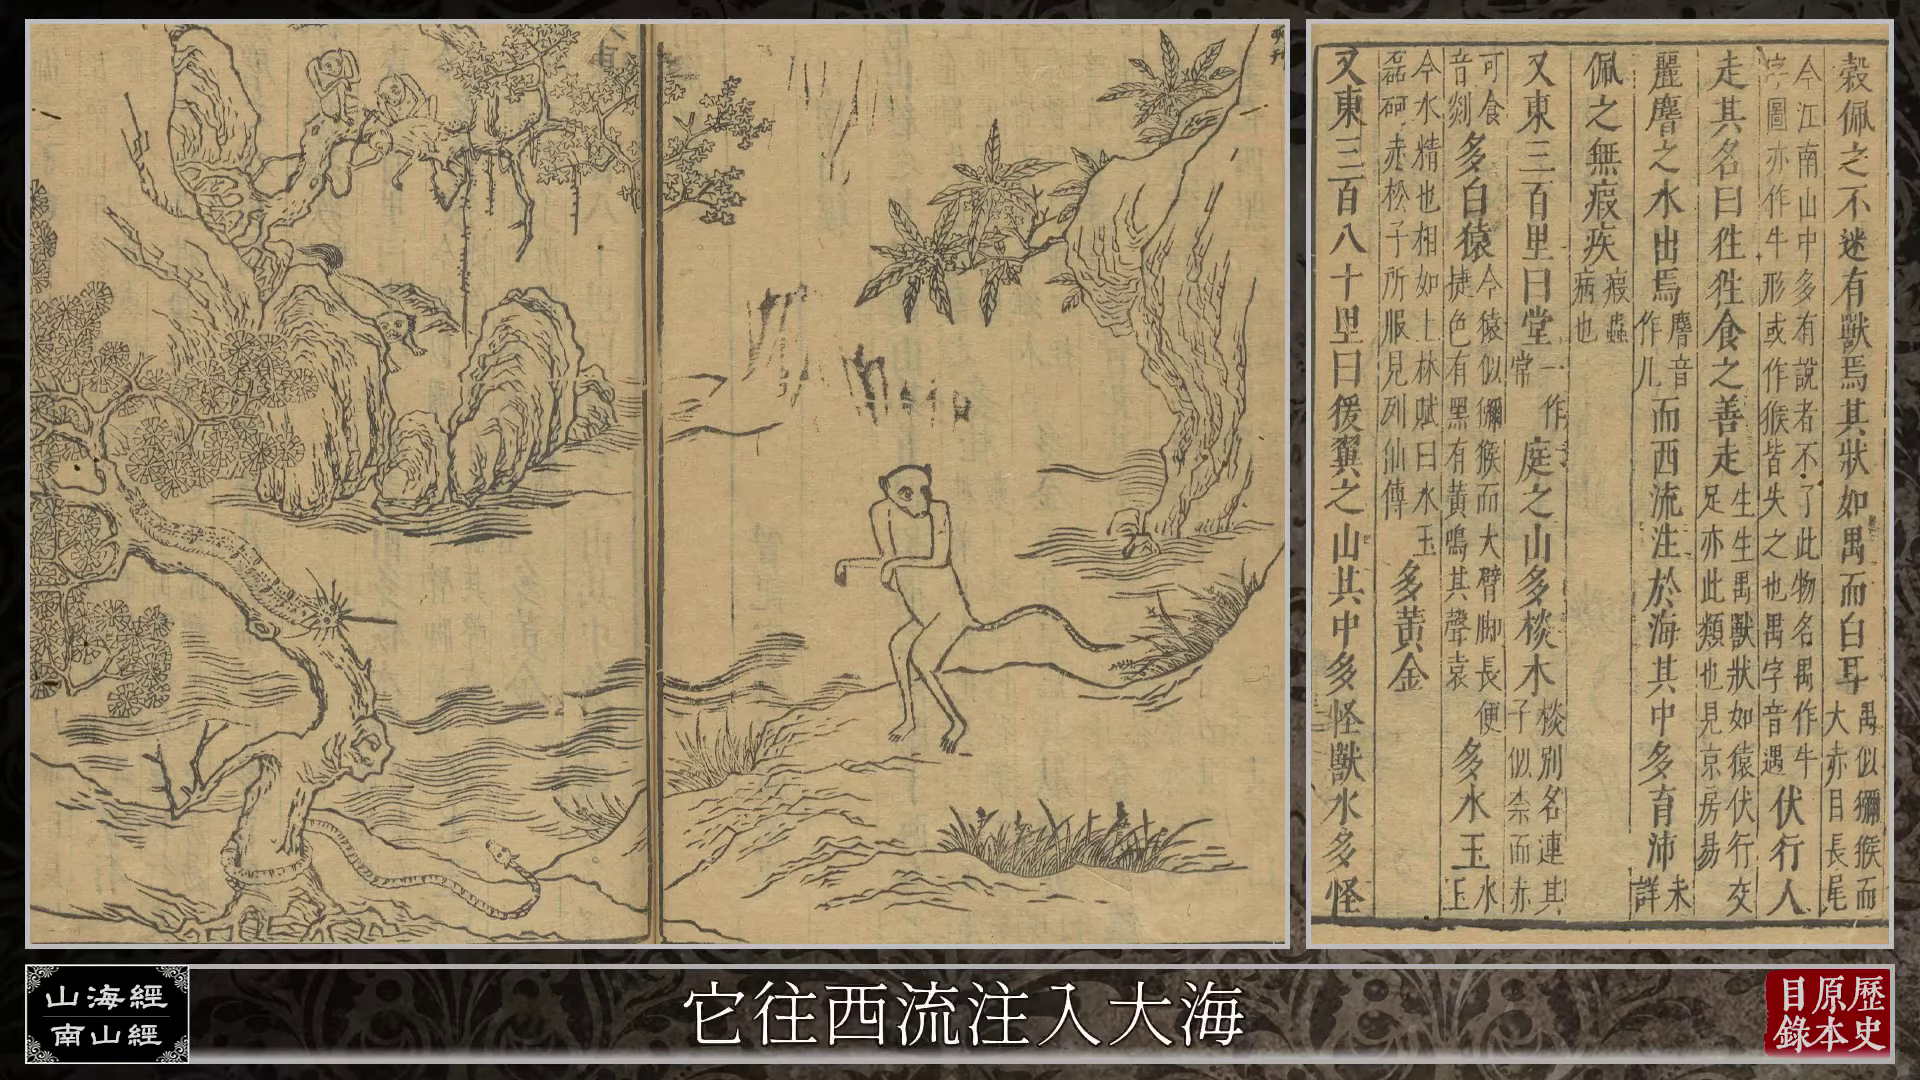 穀佩之不迷有獸焉其狀如禺而白耳禺似獼猴而大赤目長尾
今江南山中多有說者不了此物名禺作牛字圖亦作牛形或作猴皆失之也禺字音遇伏行人
走其名曰狌狌食之善走生生禺獸狀如猿伏行交足亦此類也見京房易
麗𪊨之水出焉𪊨音作几而西流注於海其中多育沛未詳
佩之無瘕疾瘕蟲病也
又東三百里曰堂一作常庭之山多棪木棪別名連其子似柰而赤
可食音剡多白猿今猿似獼猴而大臂脚長便捷色有黑有黃鳴其聲哀多水玉水玉
今水精也相如上林賦曰水玉磊砢赤松子所服見列仙傳多黃金
又東三百八十里曰猨翼之山其中多怪獸水多怪
山海經
南山經
它往西流注入大海
歷史
原本
目錄